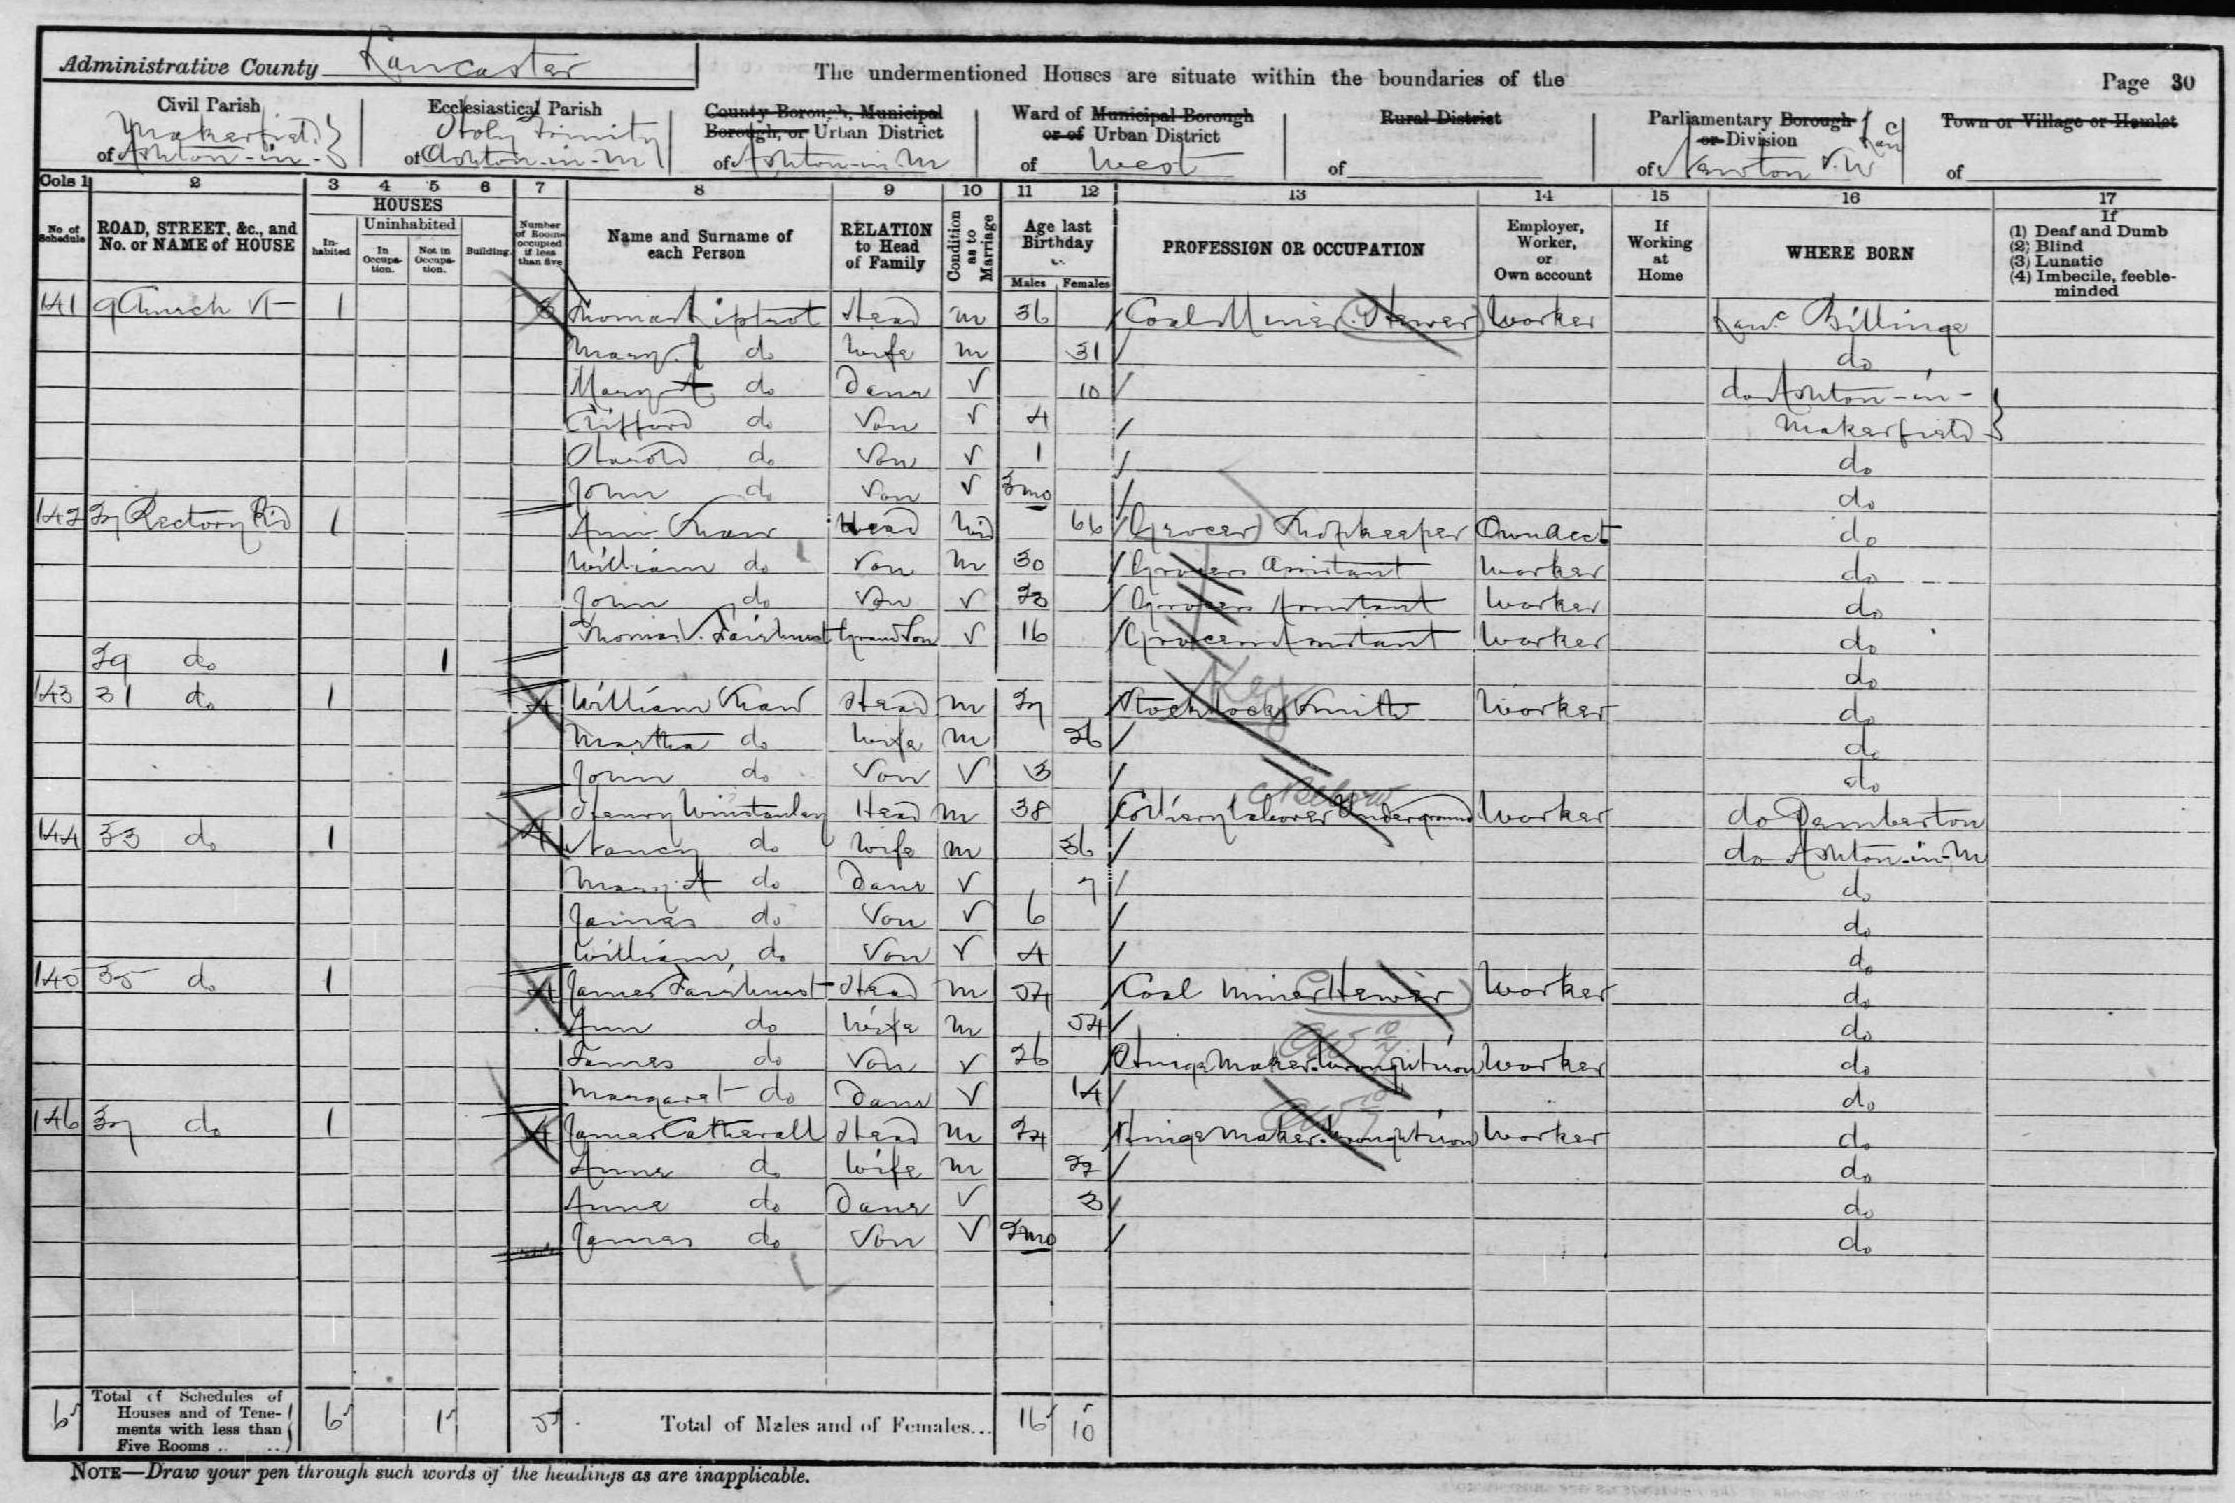 Administrative County Lancaster
The undermentioned Houses are situate within the boundaries of the
Page 30
Civil Parish
of Ashton-in-Makerfield
Ecclesiastical Parish
of Holy Trinity Ashton-in-M
County Borough, Municipal Borough, or Urban District
of Ashton-in-M
Ward of Municipal Borough or of Urban District
of West
Rural District
of
Parliamentary Borough or Division
of Newton S.W
Town or Village or Hamlet
of
Cols 1 2 3 4 5 6 7 8 9 10 11 12 13 14 15 16 17
No. of Schedule
ROAD, STREET, &c., and No. or NAME of HOUSE
HOUSES
Inhabited
Uninhabited
In Occupation.
Not in Occupation.
Building.
Number of Rooms occupied if less than five
Name and Surname of each Person
RELATION to Head of Family
Condition as to Marriage
Age last Birthday
Males Females
PROFESSION OR OCCUPATION
Employer, Worker, or Own account
If Working at Home
WHERE BORN
If
(1) Deaf and Dumb
(2) Blind
(3) Lunatic
(4) Imbecile, feeble-minded
141 9 Church St 1 Thomas Liptrot Head M 36 Coal Miner (Hewer) Worker Lanc Billinge
Mary J do Wife M 31 do
Mary A do Daur S 10 do Ashton-in-
Clifford do Son S 4 Makerfield
Harold do Son S 1 do
John do Son S 3mo do
142 27 Rectory Rd 1 Ann Shaw Head Wid 66 Grocer Shopkeeper Own Acct do
William do Son M 30 Grocers Assistant Worker do
John do Son S 23 Grocers Assistant Worker do
Thomas S. Fairhurst Grand Son S 16 Grocers Assistant Worker do
29 do 1 do
143 31 do 1 4 William Shaw Head M 27 Stock Lock Smith Worker do
Martha do Wife M 26 do
John do Son S 3 do
Henry Winstanley Head M 38 Colliery Laborer Underground Worker do Pemberton
144 33 do 1 4 Nancy do Wife M 36 do Ashton-in-M
Mary A do Daur S 7 do
James do Son S 6 do
William do Son S 4 do
145 35 do 1 4 James Fairhurst Head M 54 Coal Miner (Hewer) Worker do
Ann do Wife M 54 do
James do Son S 26 Hinge Maker. Wrought iron Worker do
Margaret do Daur S 14 do
146 37 do 1 4 James Catherall Head M 24 Hinge Maker. Wrought iron Worker do
Anne do Wife M 22 do
Anne do Daur S 3 do
James do Son S 2mo do
6 Total of Schedules of Houses and of Tenements with less than Five Rooms .. .. 6 1 5 Total of Males and of Females... 16 10
NOTE—Draw your pen through such words of the headings as are inapplicable.